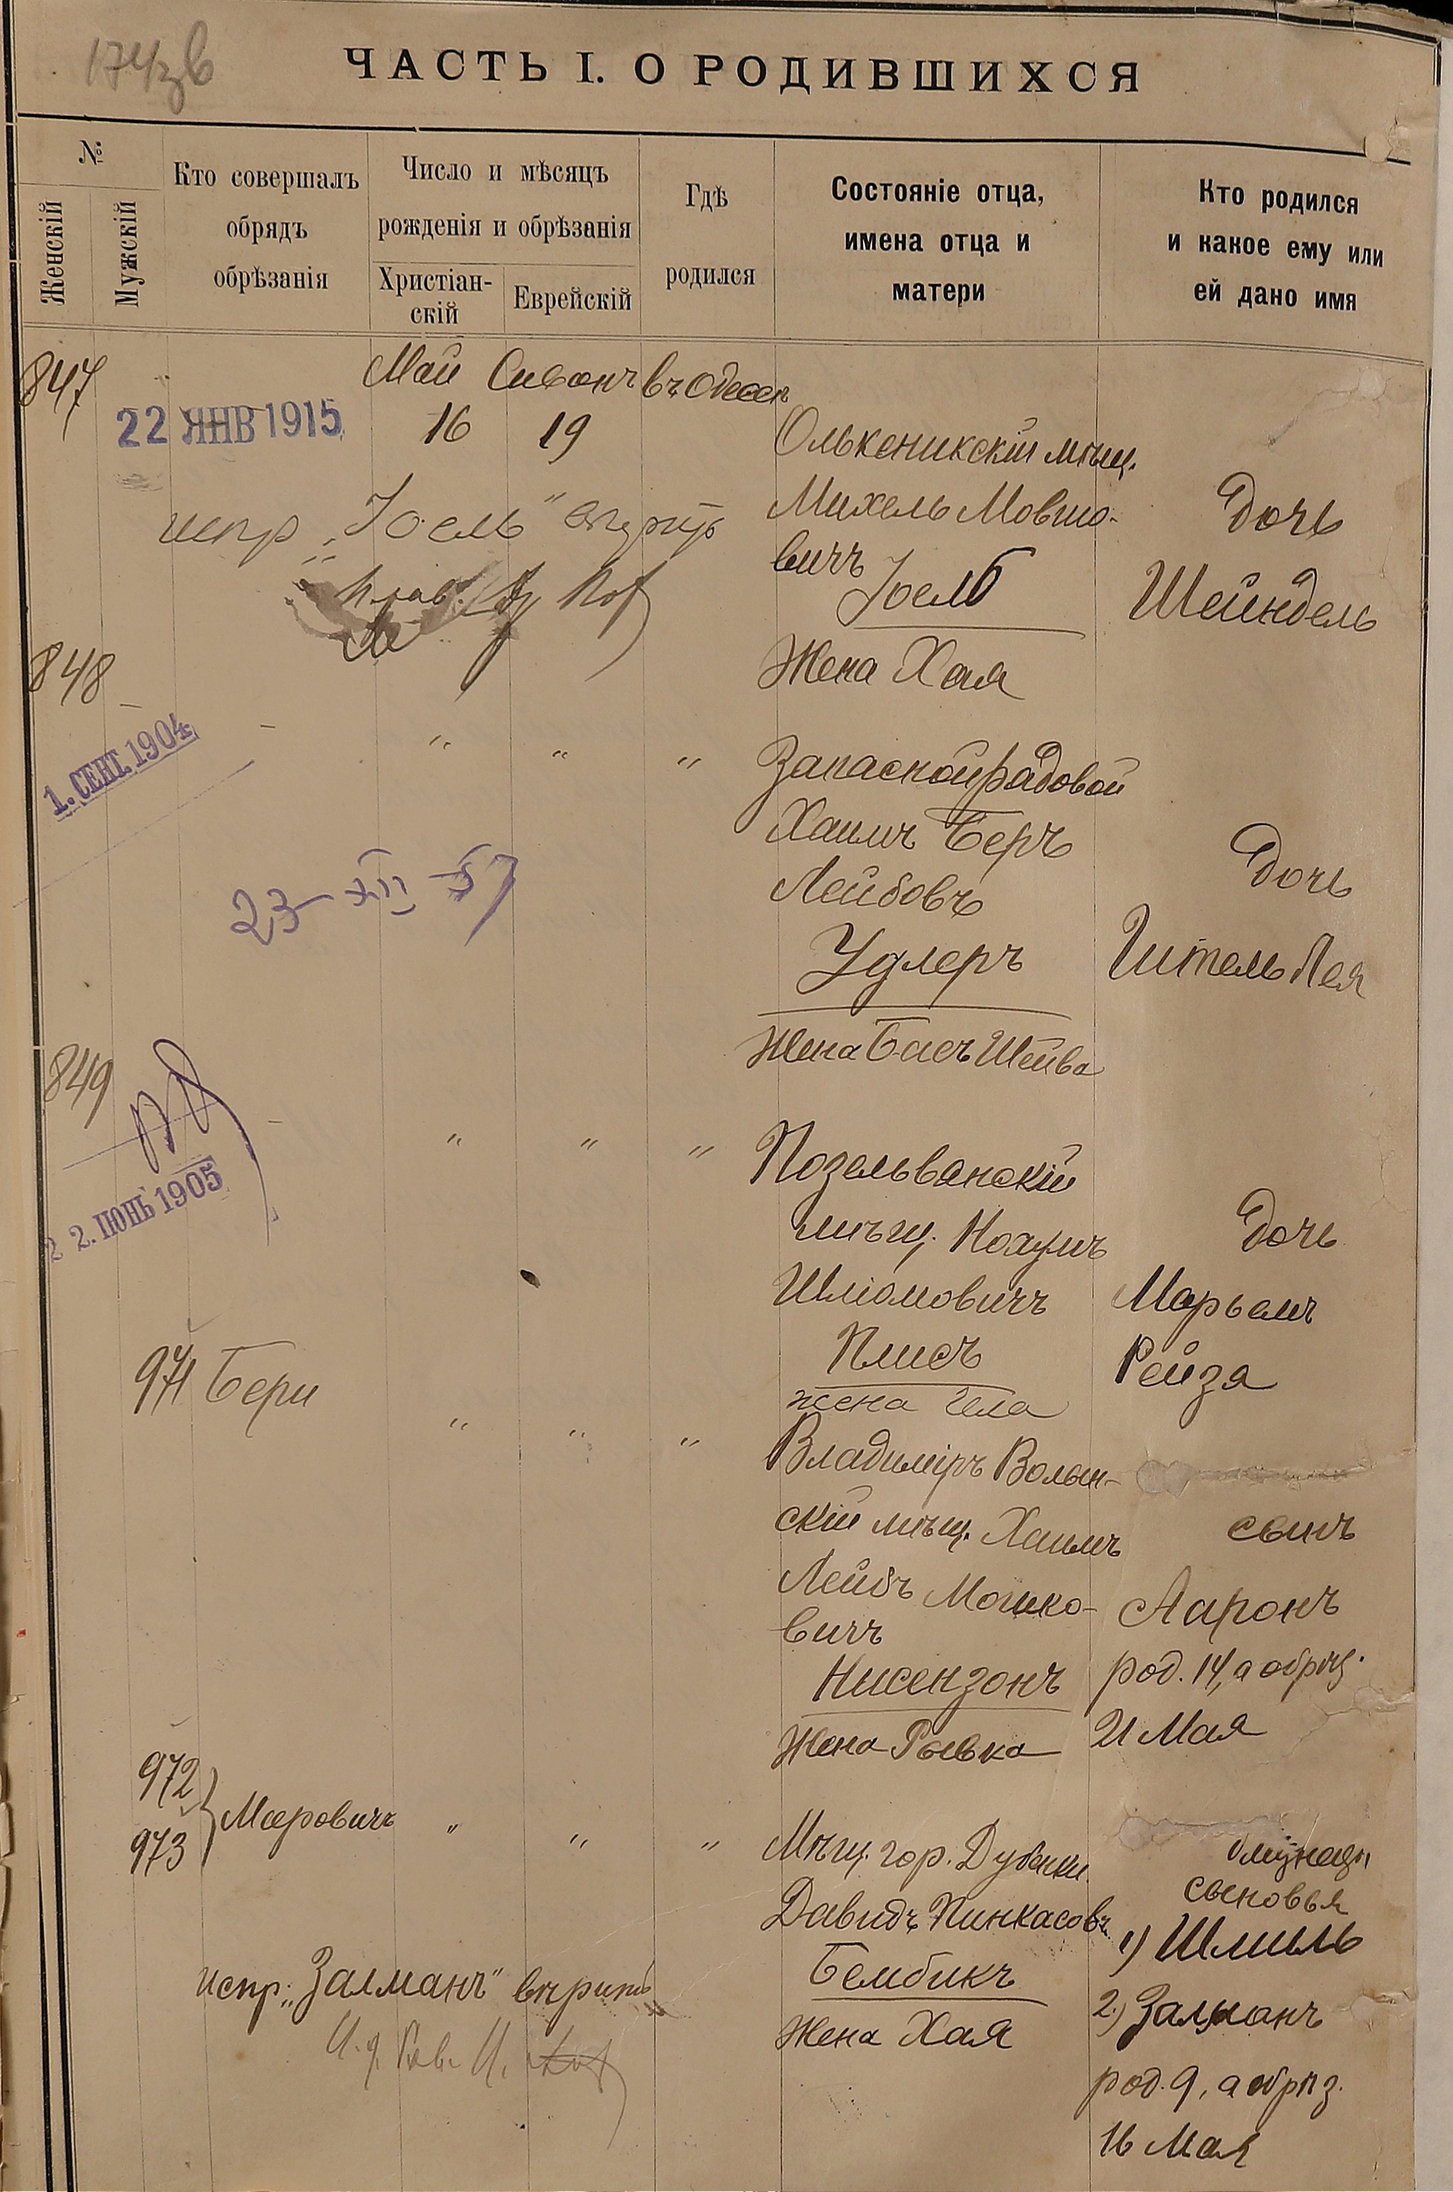 ЧАСТЬ I. О РОДИВШИХСЯ
№
Женскій
Мужскій
Кто совершалъ
обрядъ
обрѣзанія
Число и мѣсяцъ
рожденія и обрѣзанія
Христіан-
скій
Еврейскій
Гдѣ
родился
Состояніе отца,
имена отца и
матери
Кто родился
и какое ему или
ей дано имя
847
22 ЯНВ 1915
Май Сиванъ въ Одессѣ
16 19
Олькеникскій мѣщ.
Михель Мовшо-
вичъ
Іоель
Жена Хая
Дочь
Шейндель
испр. „Іоель“ вѣрить
848
1. СЕНТ. 1904
23 - XII - 57
" " "
Запасной рядовой
Хаимъ Беръ
Лейбовъ
Удлеръ
Жена Бась Шейва
Дочь
Гитель Лея
849
22. ІЮНЬ 1905
" " "
Позельванскій
мѣщ. Нохумъ
Шліомовичъ
Плисъ
жена Гела
Дочь
Марьемъ
Рейза
971 Бери
" " "
Владимиръ Волын-
скій мѣщ. Хаимъ
Лейбъ Мошко-
вичъ
Нисензонъ
Жена Рывка
сынъ
Ааронъ
род. 14, а обрѣз.
21 Мая
972
973
Меровичъ
" " "
Мѣщ. гор. Дубенки
Давидъ Пинкасовъ
Бембикъ
Жена Хая
сыновья
1) Шмиль
2) Залманъ
род. 9, а обрѣз.
16 Мая
испр. „Залманъ“ вѣрить